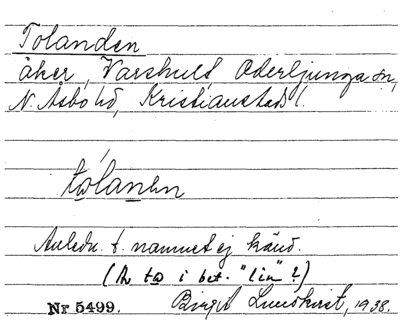 Tolanden
åker, Varshult Oderljunga sn,
N. Åsbo hd, Kristianstads l.
tålanen
Anledn. t. namnet ej känd.
(Är to i bet. "lin"?)
Nr 5499. Birgit Lundkvist, 1938.